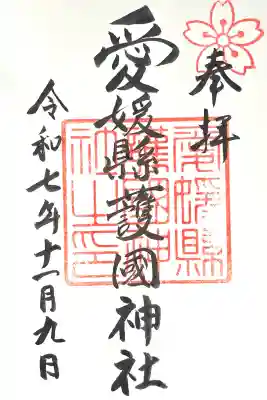 奉拝
愛媛縣護國神社
愛媛縣
護國神
社之印
令和七年十一月九日